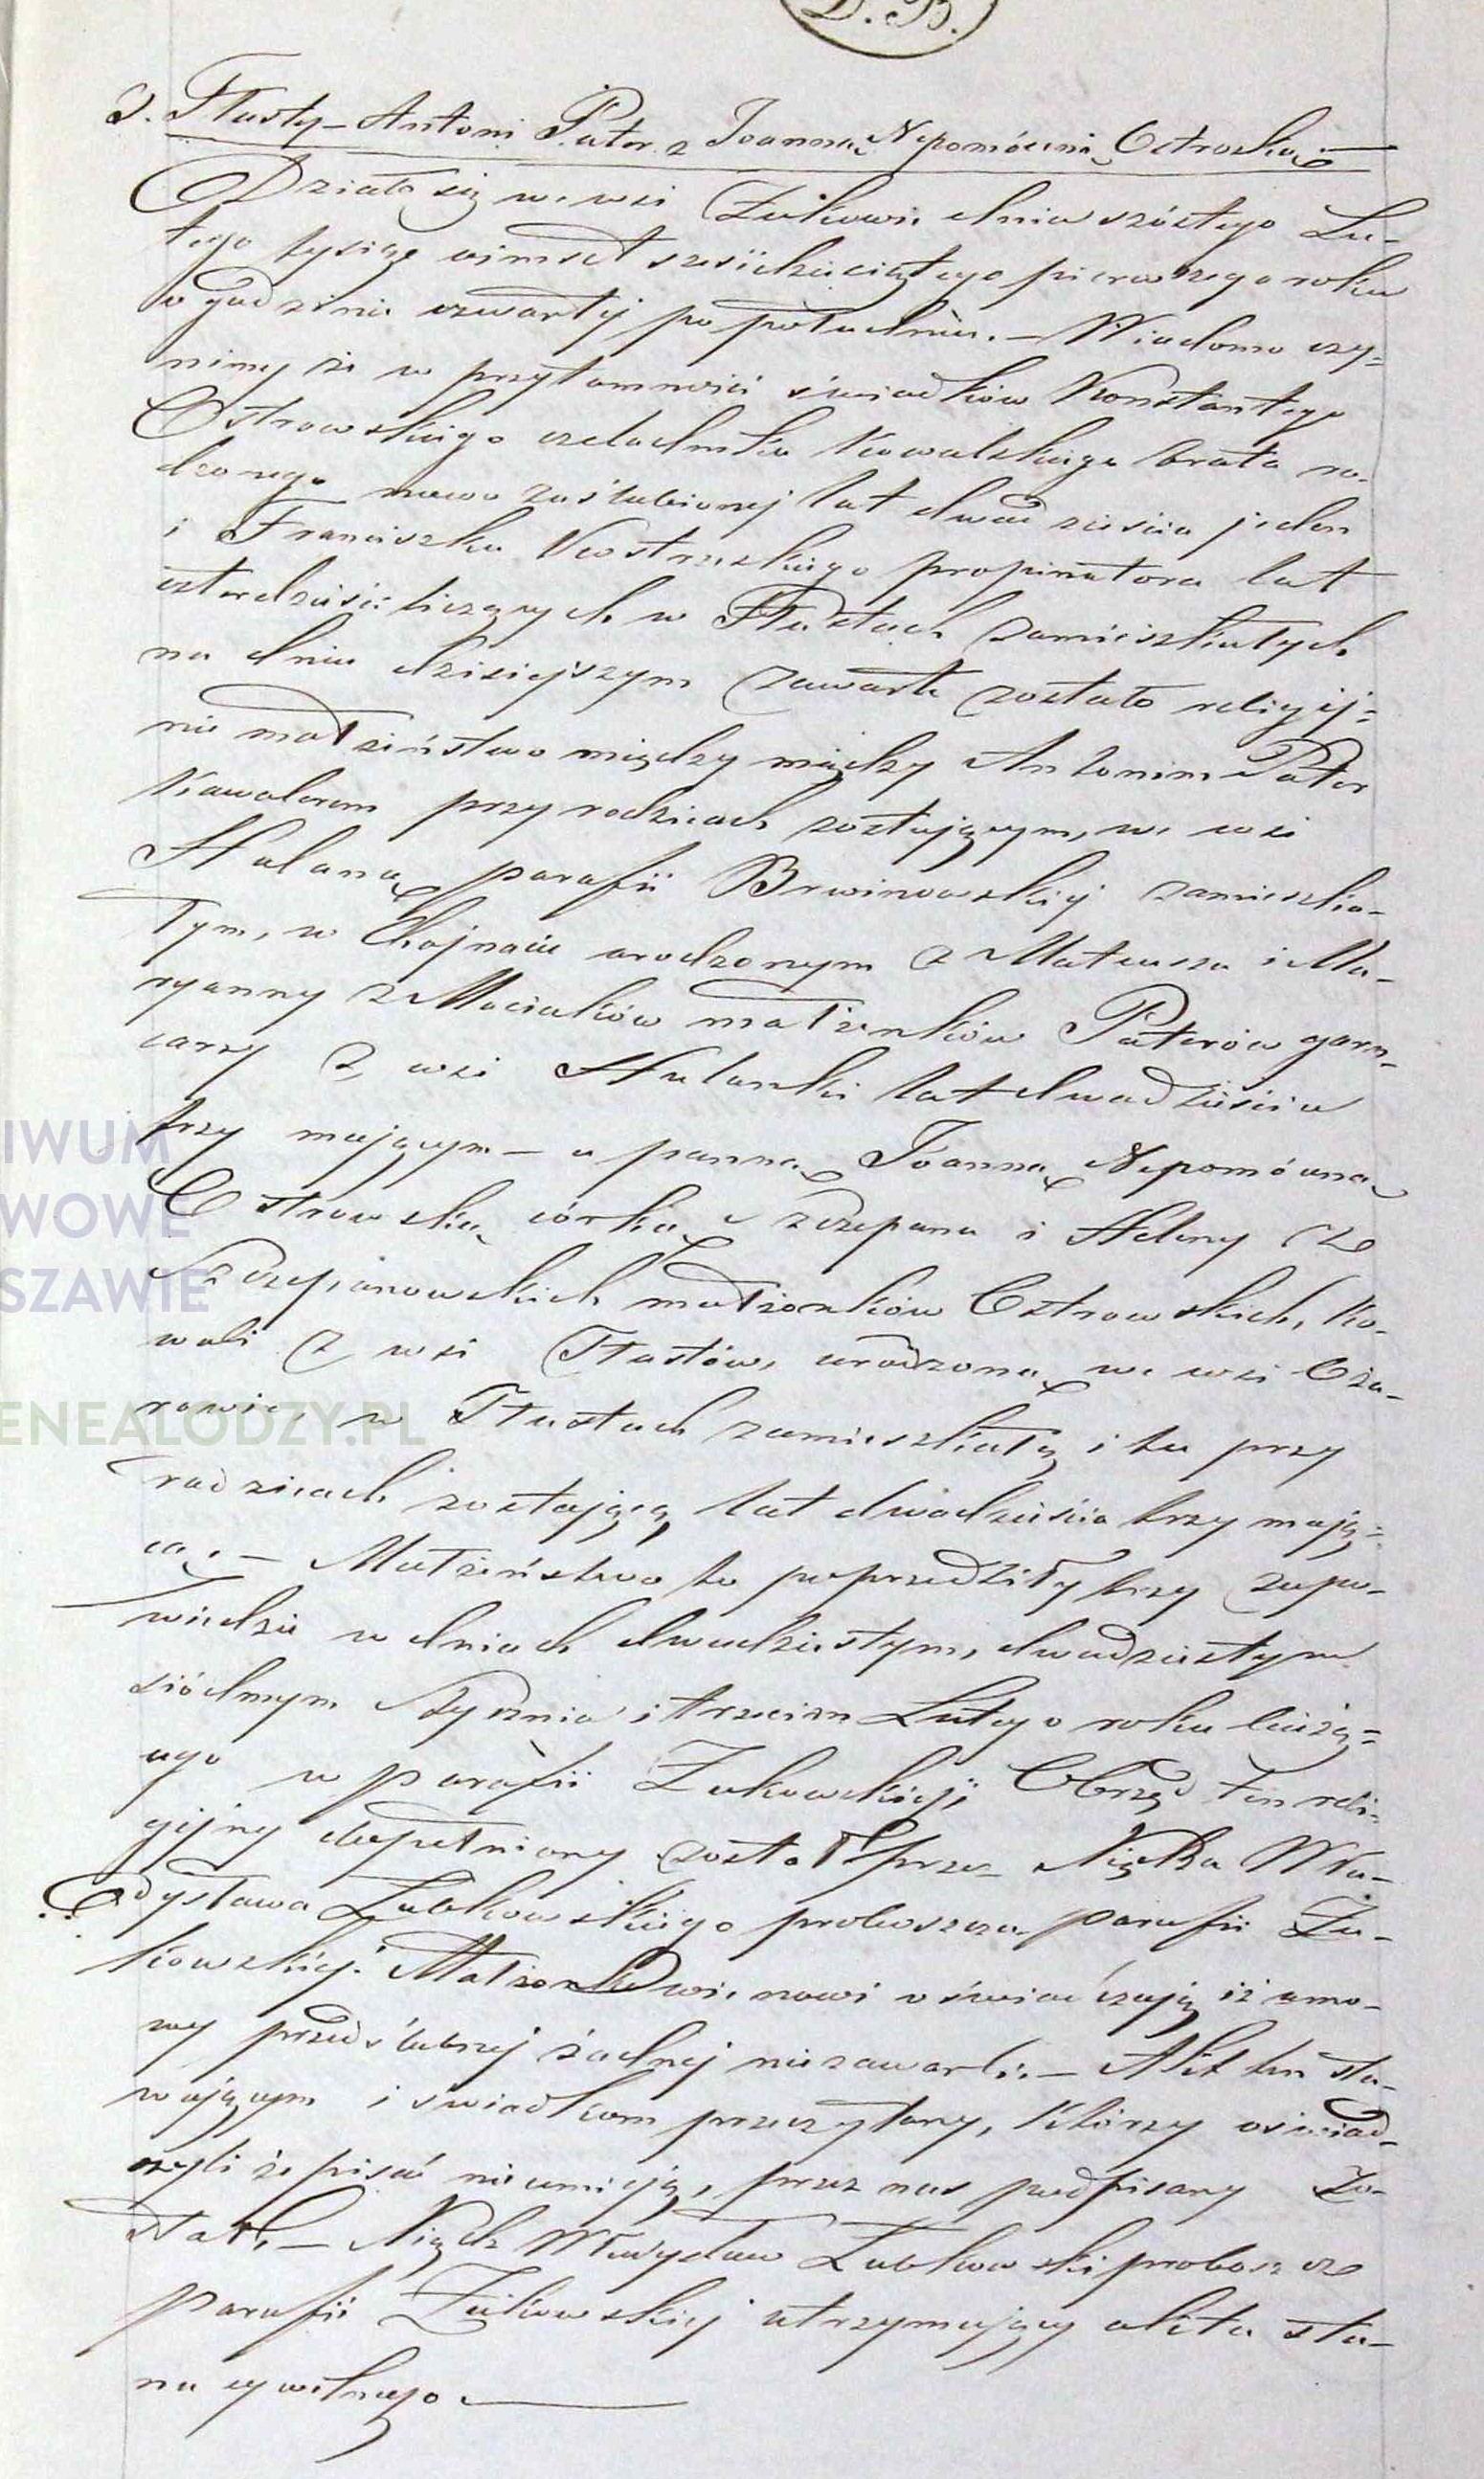 D. B.
2. Tłusty – Antoni Pater z Joanną Nepomóceną Ostroską
Działo się we wsi Żukowie dnia szóstego Lu-
tego tysiąc ośmset sześćdziesiątego pierwszego roku
o godzinie czwartej po południu. – Wiadomo czy-
nimy że w przytomności świadków Konstantego
Ostrowskiego czeladnika Kowalskiego brata ro-
dzonego nowo zaślubionej lat dwadzieścia jeden
i Franciszka propinatora lat
czterdzieści liczących w Tłustach zamieszkałych
na dniu dzisiejszym zawarte zostało religij-
nie małżeństwo między między Antonim Pater
Kawalerem przy rodzicach zostającym, we wsi
parafii Brwinowskiej zamieszka-
łym, w Chojnacie urodzonym z Mateusza i Ma-
ryanny z Maciaków małżonków Paterów garn-
carzy z wsi lat dwadzieścia
trzy mającym – a panną Joanną Nepomóceną
Ostrowską córką Szczepana i Heleny ze
Szczepanowskich małżonków Ostrowskich, Ko-
wali z wsi Tłustów, urodzoną we wsi Oża-
rowie, w Tłustach zamieszkałą i tu przy
rodzicach zostającą lat dwadzieścia trzy mają-
cą. – Małżeństwo to poprzedziły trzy zapo-
wiedzie w dniach dwudziestym, dwudziestym
siódmym Stycznia i trzecim Lutego roku bieżą-
cego w parafii Żukowskiej, Obrzęd ten reli-
gijny dopełniony został przez Xiędza Wła-
dysława Zubkowskiego proboszcza parafii Żu-
kowskiej. Małżonkowie nowi oświadczają iż umo-
wy przedślubnej żadnej nie zawarli. – Akt ten sta-
wającym i świadkom przeczytany, którzy oświad-
czyli że pisać nieumieją, przez nas podpisany zo-
stał. – Xiądz Władysław Zubkowski proboszcz
parafii Żukowskiej utrzymujący akta sta-
nu cywilnego
IWUM
WOWE
SZAWIE
ENEALODZY.PL